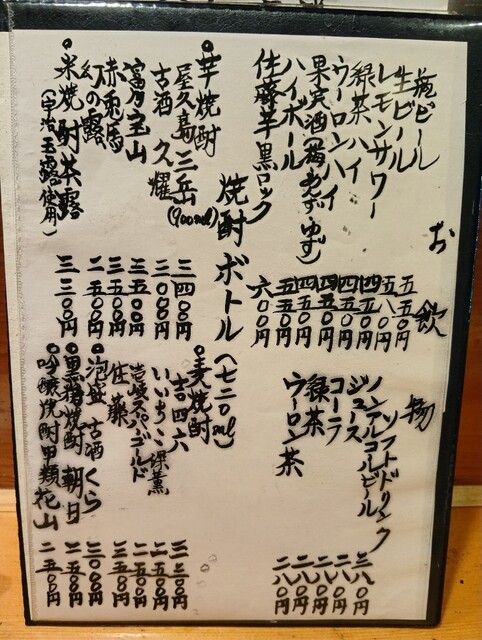 お飲物
瓶ビール 五五〇円
生ビール 五八〇円
レモンサワー 四五〇円
緑茶ハイ 四五〇円
ウーロンハイ 四五〇円
果実酒(梅 あんず ゆず) 四五〇円
ハイボール 五五〇円
佐藤芋黒ロック 六〇〇円
ソフトドリンク
ノンアルコールビール 三八〇円
ジュース 二八〇円
コーラ 二八〇円
緑茶 二八〇円
ウーロン茶 二八〇円
焼酎ボトル(七二〇ml)
○芋焼酎
屋久島 三岳(900ml) 三四〇〇円
古酒 久耀 三〇〇〇円
富乃宝山 三五〇〇円
赤兎馬 三五〇〇円
幻の露 二五〇〇円
○米焼酎 茶露 三三〇〇円
(宇治玉露使用)
○麦焼酎
吉四六 三二〇〇円
いいちこ深薫 二五〇〇円
壱岐スーパーゴールド 二五〇〇円
佐藤 三五〇〇円
○泡盛 古酒くら 三〇〇〇円
○黒糖焼酎 朝日 二五〇〇円
○吟醸焼酎甲類花山 二五〇〇円